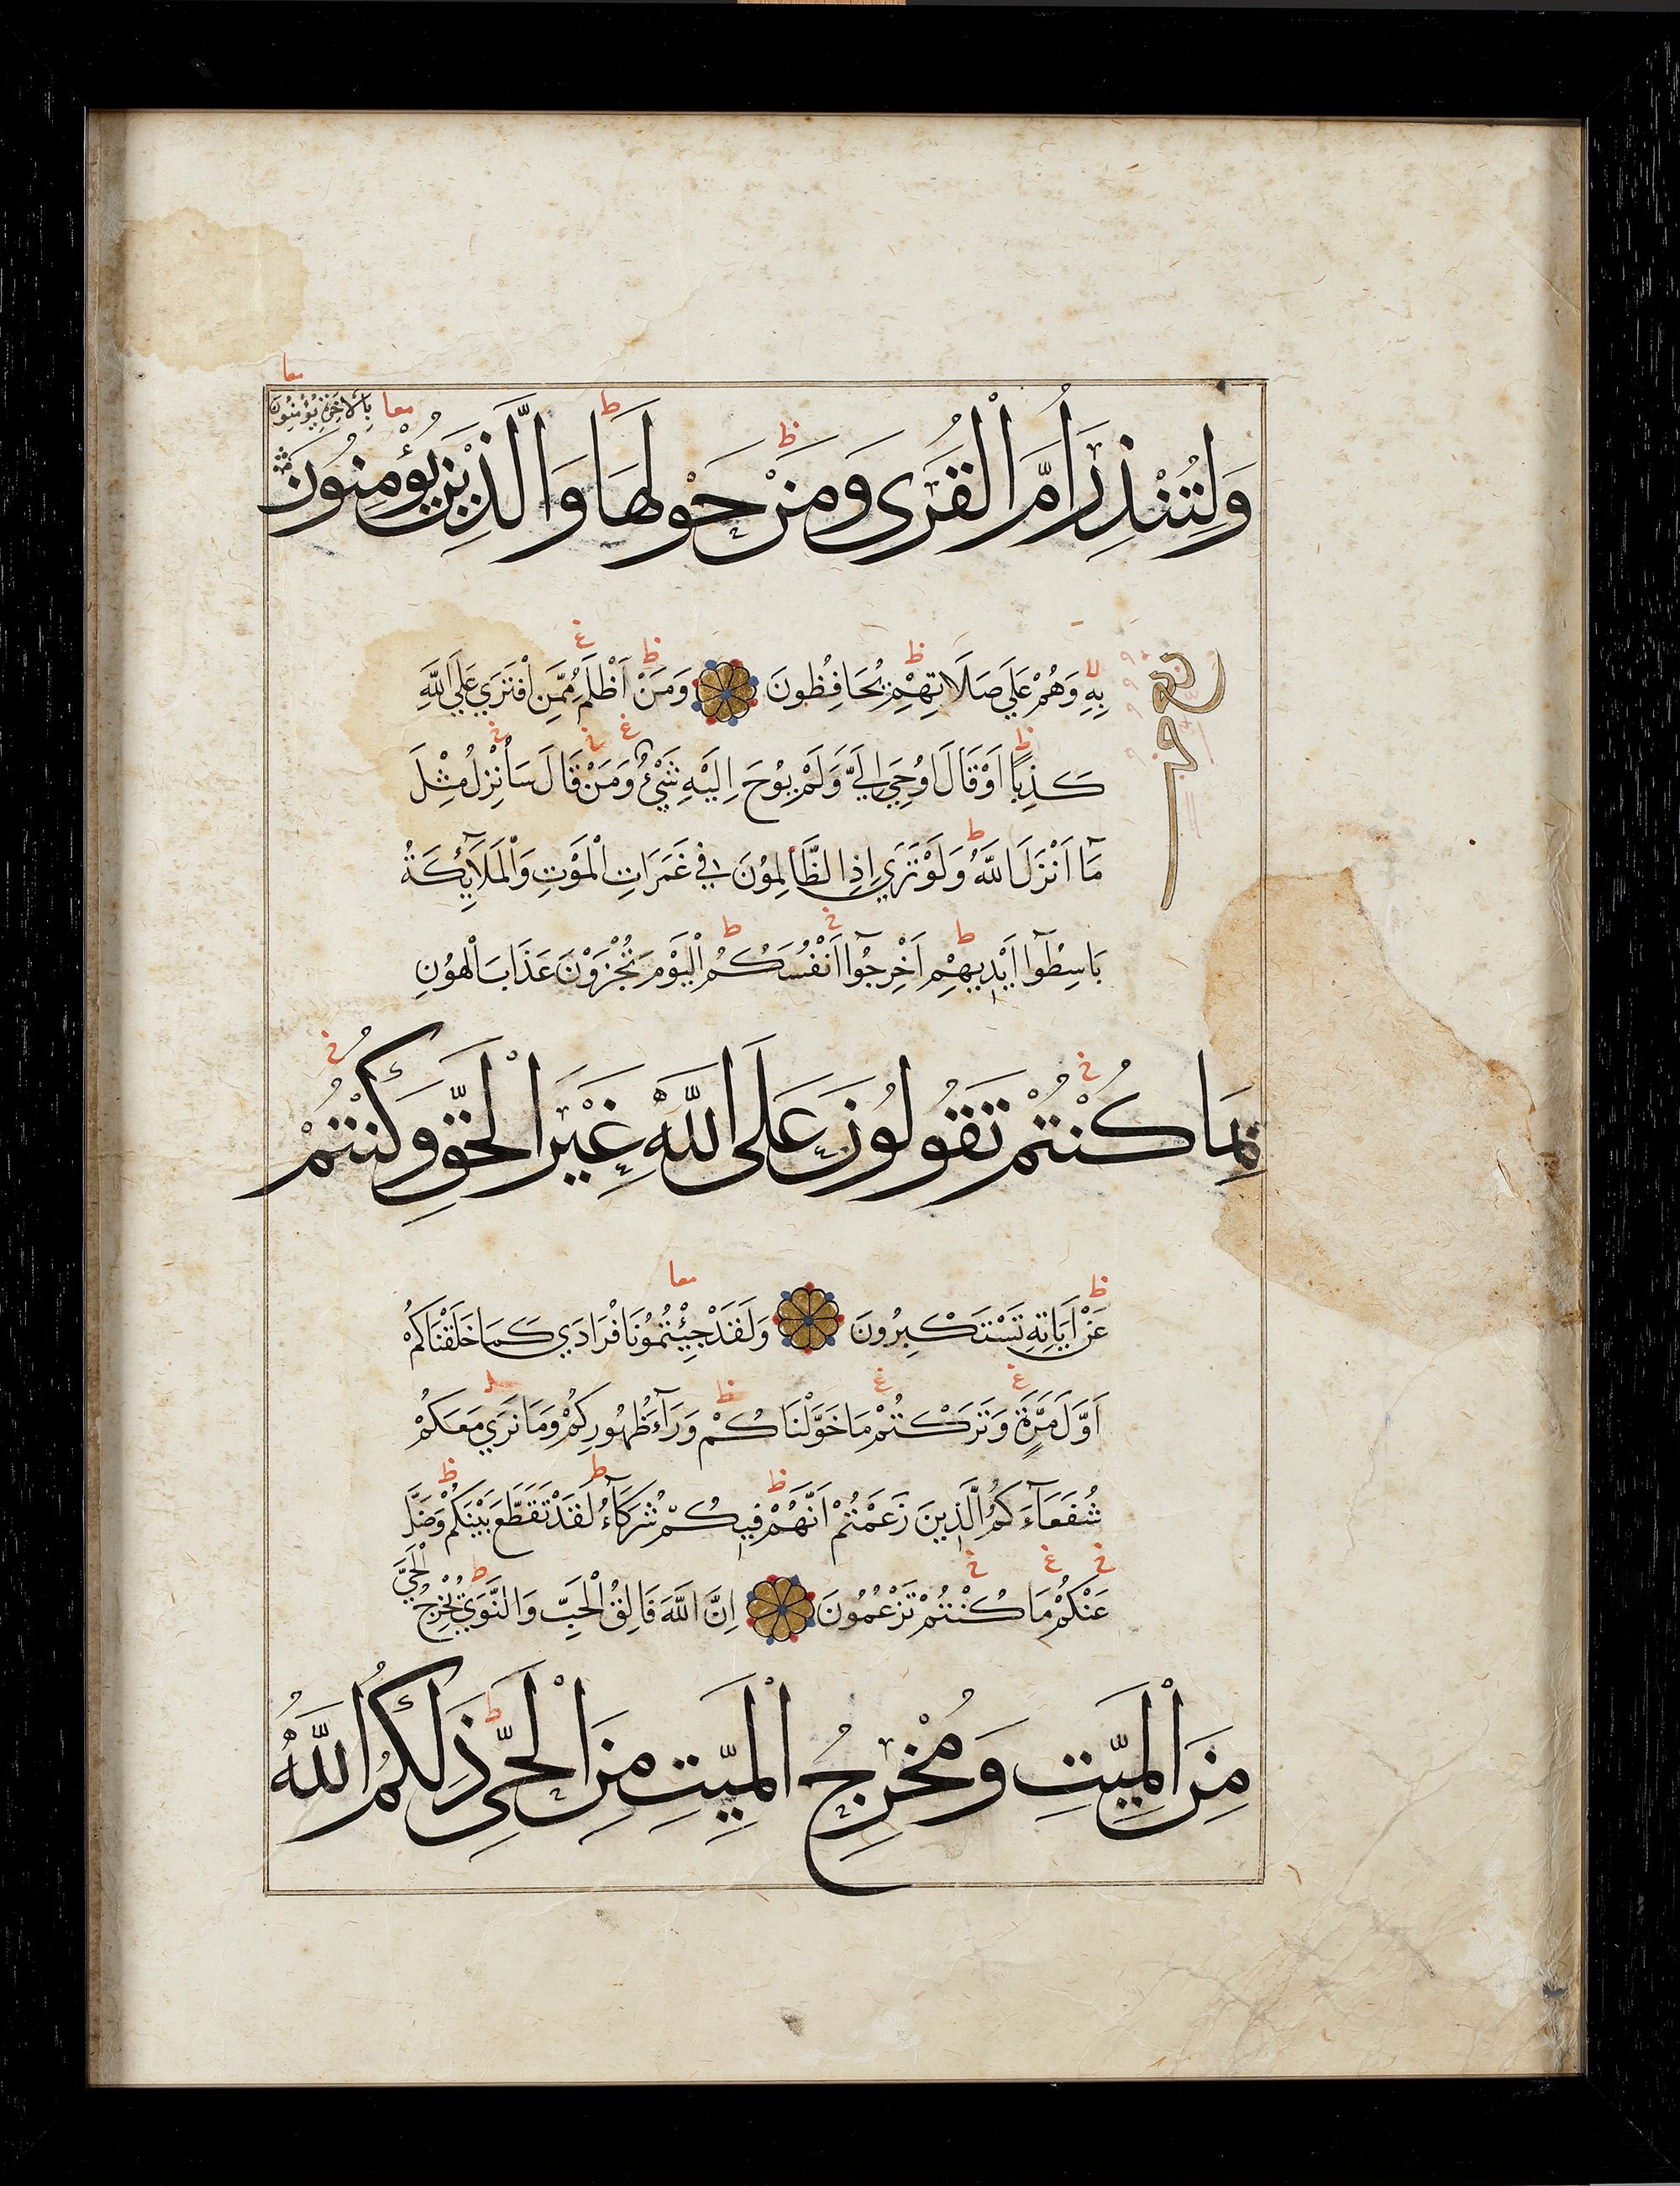 وَلِتُنْذِرَ أُمَّ الْقُرَى وَمَنْ حَوْلَهَا وَالَّذِينَ يُؤْمِنُونَ
بِالْآخِرَةِ يُؤْمِنُونَ
بِهِ وَهُمْ عَلَي صَلَاتِهِمْ يُحَافِظُونَ وَمَنْ اَظْلَمُ مِمَّنِ افْتَرَي عَلَي اللَّهِ
كَذِبًا اَوْ قَالَ اُوحِيَ اِلَيَّ وَلَمْ يُوحَ اِلَيْهِ شَيْءٌ وَمَنْ قَالَ سَاُنْزِلُ مِثْلَ
مَآ اَنْزَلَ اللَّهُ وَلَوْ تَرَي اِذِ الظَّالِمُونَ فِي غَمَرَاتِ الْمَوْتِ وَالْمَلَآئِكَةُ
بَاسِطُوٓا اَيْدِيهِمْ اَخْرِجُوٓا اَنْفُسَكُمُ الْيَوْمَ تُجْزَوْنَ عَذَابَ الْهُونِ
بِمَا كُنْتُمْ تَقُولُونَ عَلَى اللَّهِ غَيْرَ الْحَقِّ وَكُنْتُمْ
عَنْ اٰيَاتِهِ تَسْتَكْبِرُونَ وَلَقَدْ جِئْتُمُونَا فُرَادَي كَمَا خَلَقْنَاكُمْ
اَوَّلَ مَرَّةٍ وَتَرَكْتُمْ مَا خَوَّلْنَاكُمْ وَرَآءَ ظُهُورِكُمْ وَمَا نَرَي مَعَكُمْ
شُفَعَآءَكُمُ الَّذِينَ زَعَمْتُمْ اَنَّهُمْ فِيكُمْ شُرَكَآءُ لَقَدْ تَقَطَّعَ بَيْنَكُمْ وَضَلَّ
عَنْكُمْ مَا كُنْتُمْ تَزْعُمُونَ اِنَّ اللَّهَ فَالِقُ الْحَبِّ وَالنَّوَي يُخْرِجُ الْحَيَّ
مِنَ الْمَيِّتِ وَمُخْرِجُ الْمَيِّتِ مِنَ الْحَيِّ ذَلِكُمُ اللَّهُ